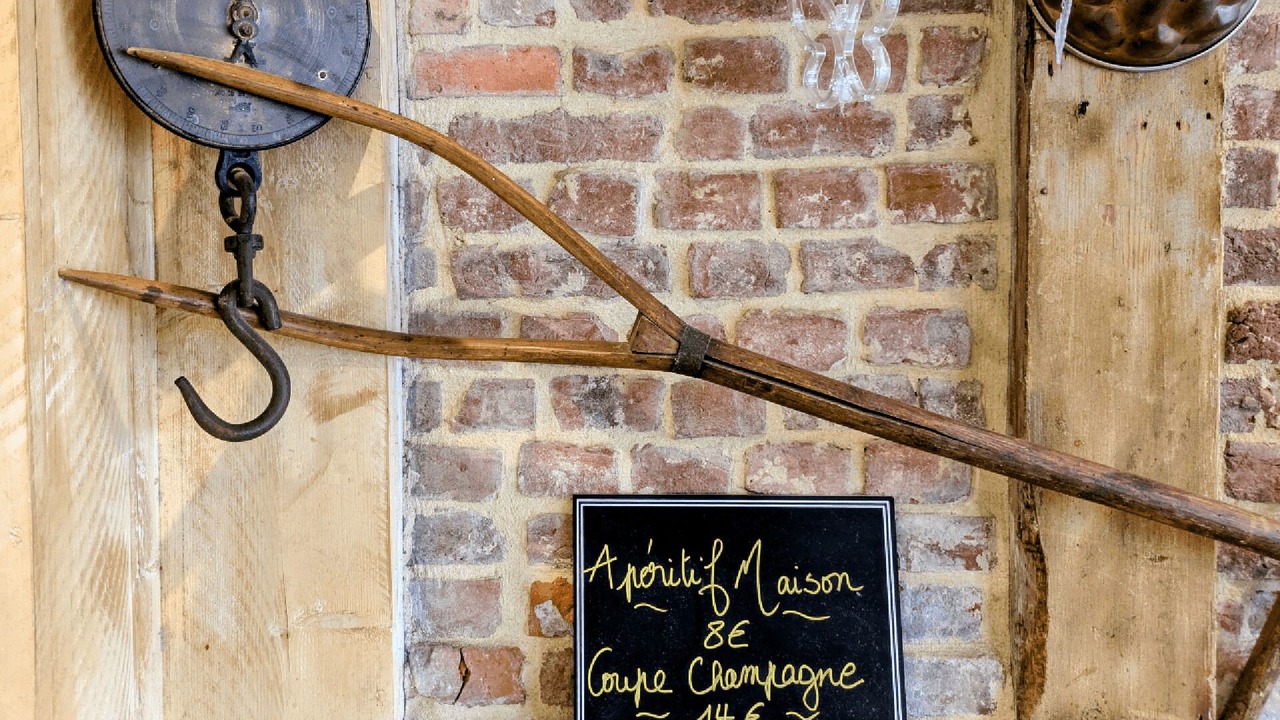 Apéritif Maison
8€
Coupe Champagne
14€